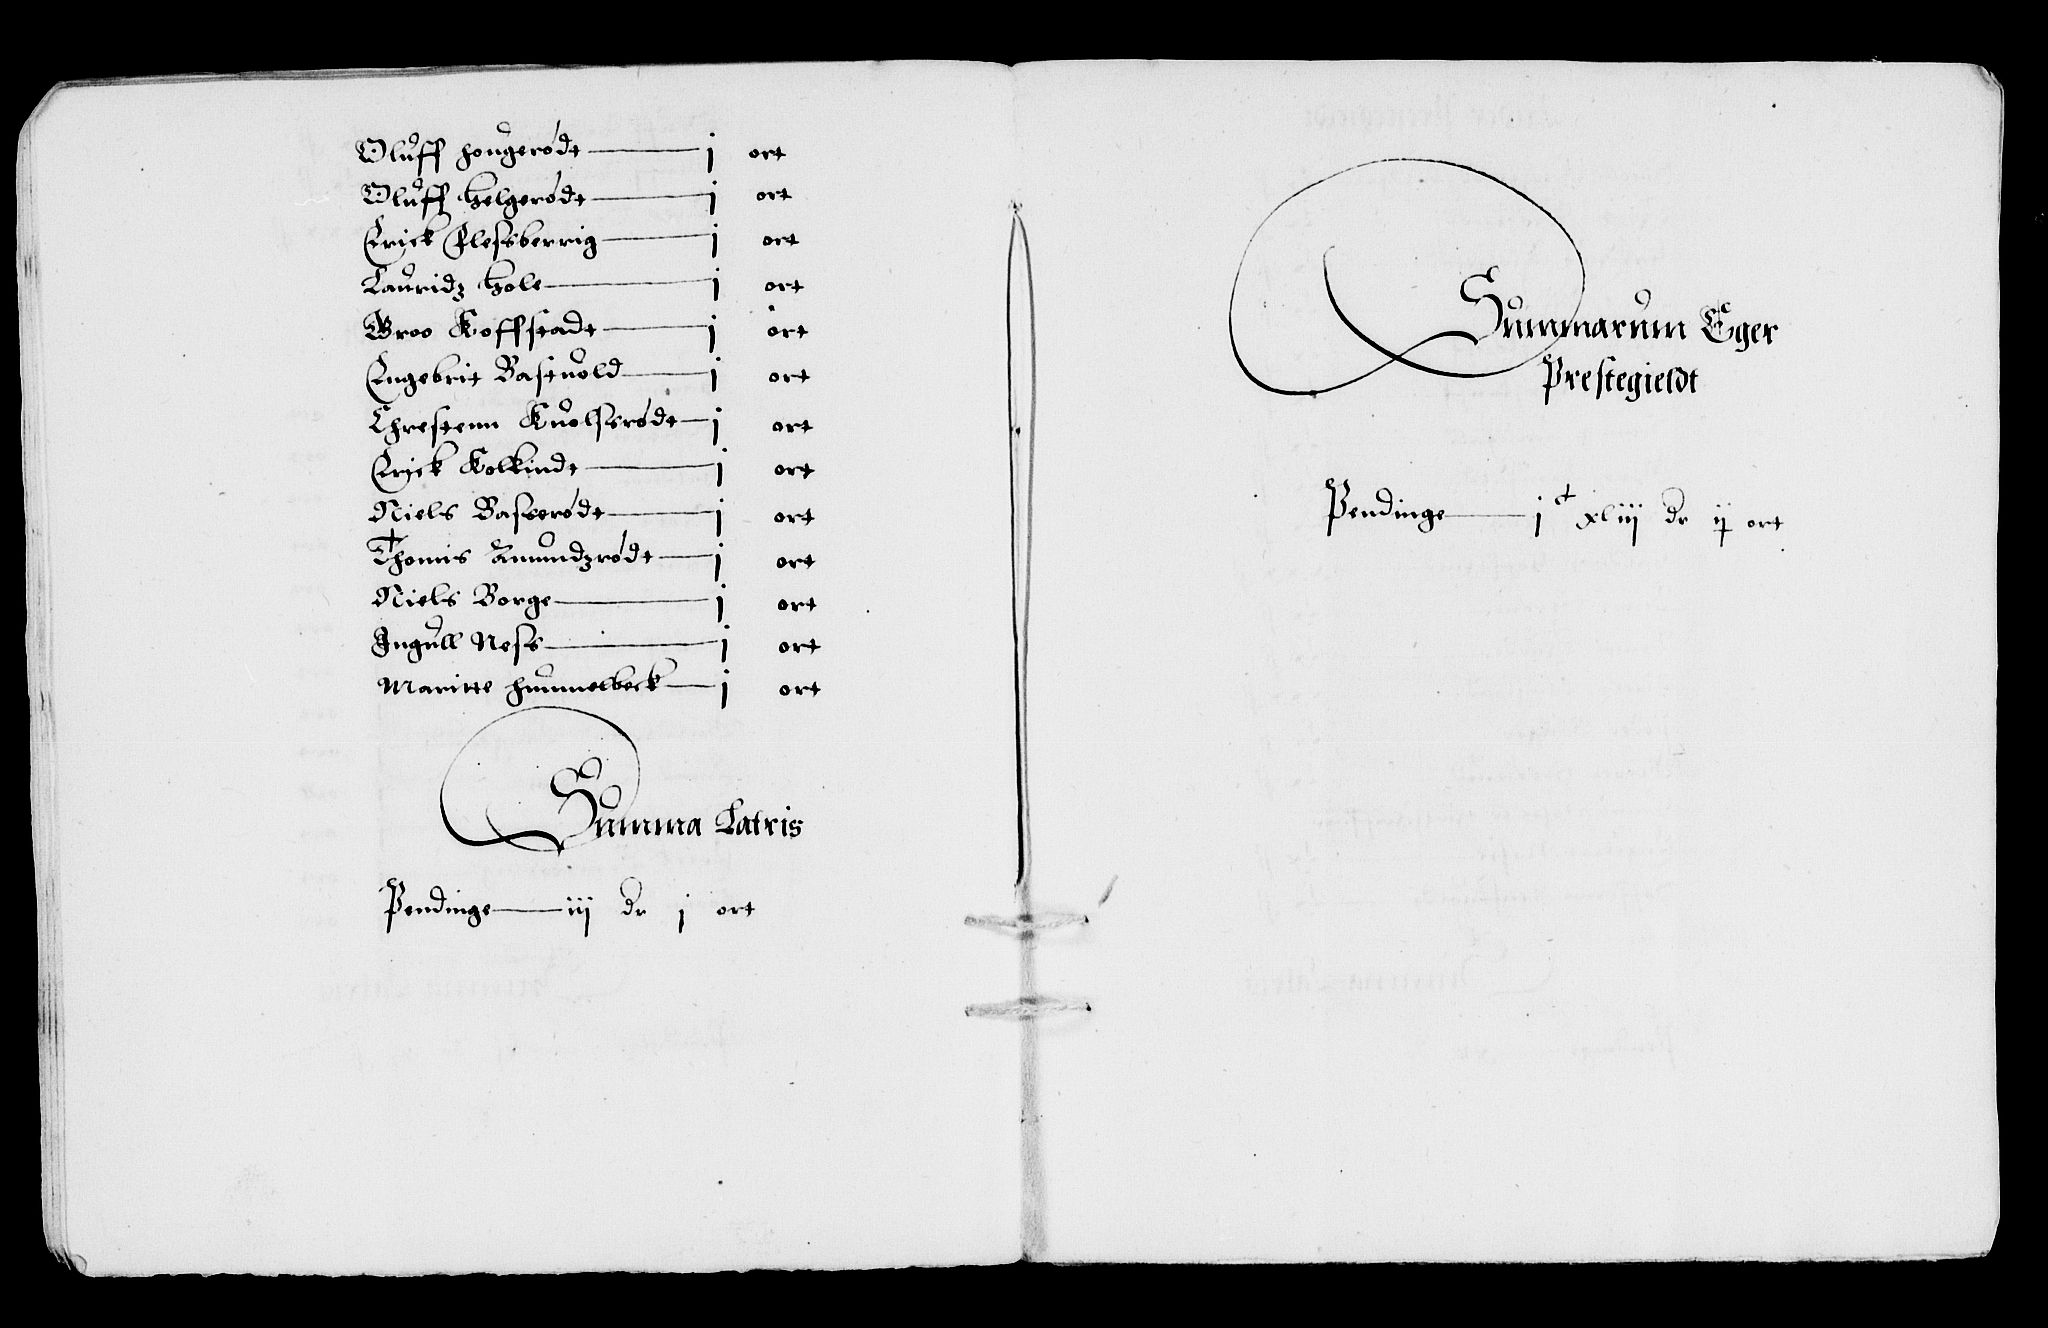 Oluff Hougerødt — j ort
Oluff Helgerødt — j ort
Erick Flessberrig — j ort
Lauridz Hole — j ort
Broo Koffstadt — j ort
Engebrit Bastuold — j ort
Chrestenn Knolssrødt — j ort
Erick Kolkindt — j ort
Niels Basserødt — j ort
Thomis Amundzrødt — j ort
Niels Borge — j ort
Ingull Ness — j ort
Maritte Hummelbeck — j ort
Summa Latris
Pendinge — iij dr j ort
Summarum Eger
Prestegieldt
Pendinge — j c xliij dr ij ort